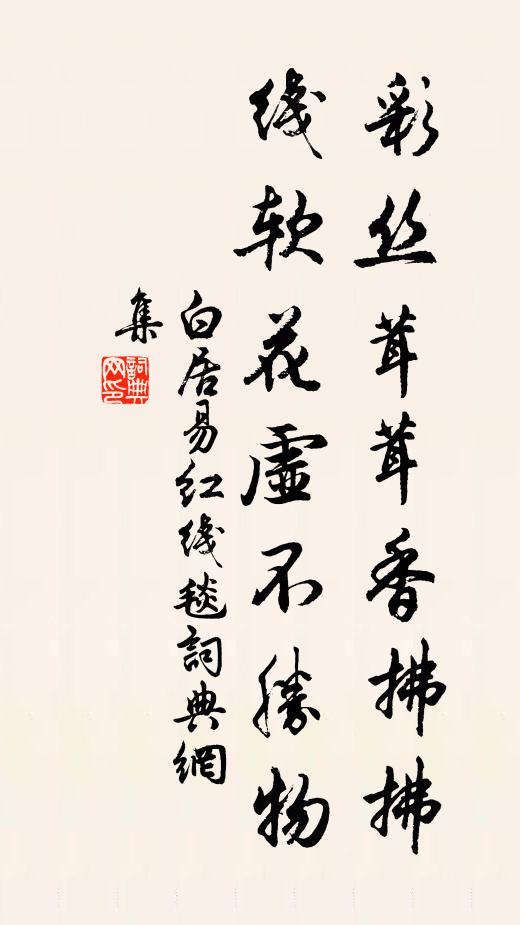 彩丝茸茸香拂拂
线软花虚不勝物
白居易红线毯詞典網
集
詞典网印